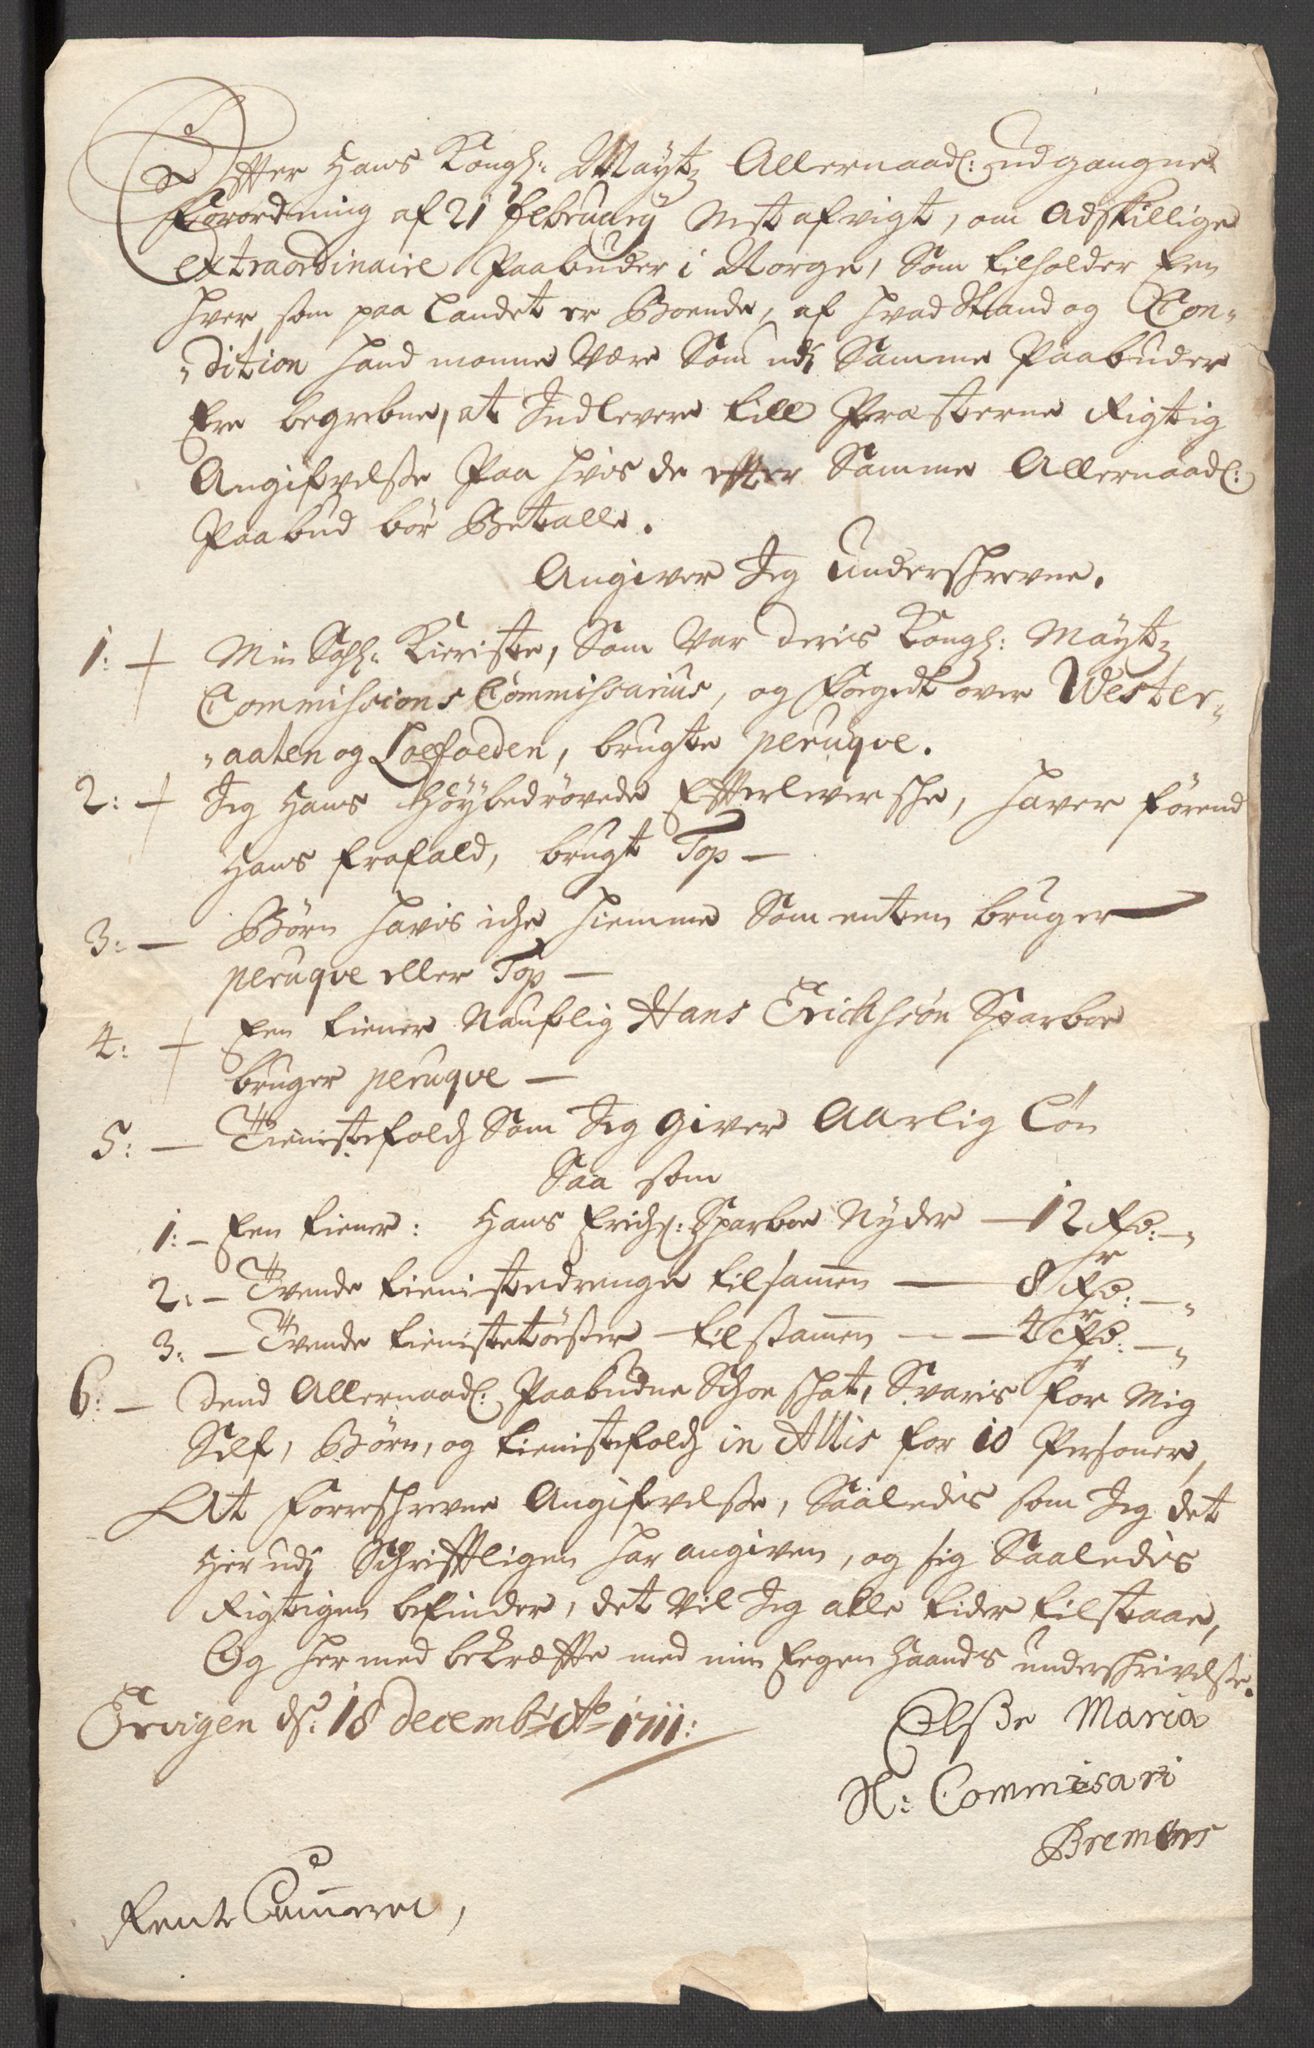 Efter Hans Kongl: Maÿtz Allernaadl: udgangne
Forordning af 21 february Nest afvigt, om Adskillige
extraordinaire Paabuder i Norge, Som tilholder Een
hver som paa Landet er Boende, af hvad Stand og Con-
dition hand monne Være Som udj Samme Paabuder
Ere begrebne, at Indlevere till Præsterne Rigtig
Angifvelsse Paa hvis de efter Samme Allernaadl:
Paabud bør Betalle.
Angiver Jeg Underschrevne.
1: Min Sahl: Kieriste, Som Var deris Kongl: Maÿtz
Commissions Commissarius, og Foegedt over Wester-
aalen og Loefoeden, brugte peruqve.
2: Jeg Hans Höybedrøvede Efterliversche, haver førend
Hans frafald, brugt Top —
3: — Børn havis iche hiemme Som enten bruger
peruqve eller Top —
4: Een tiener Naufnlig Hans Erichsøn Sparboe
bruger peruqve —
5: — Tienistefolch Som Jeg giver Aarlig Løn
Saa som
1: — Een tiener: Hans Erichs: Sparboe Nyder — 12 Rdr: — „
2: — Tvende tienistedrenge tilsamen — 8 Rdr: — „
3: — Tvende tienistetøsser tilsamen — 4 Rdr: — „
6: — Dend Allernaadl: Paabudne Schoe schat, Svaris for Mig
Self, Børn, og tienistefolch in Allis for 10 Personer,
At Forreschrevne Angifvelsse, Saaledis som Jeg det
Her udj Schriftligen har angiven, og sig Saaledis
Rigtigen befinder, det Vil Jeg alle tider tilstaae,
Og hermed bekræfte med min Eegen Haands underschrivelsse.
Ervigen ds: 18 decembr: Ao 1711:
Elsße Maria
Sl: Commisari
Bremers
Rente Cammeret,